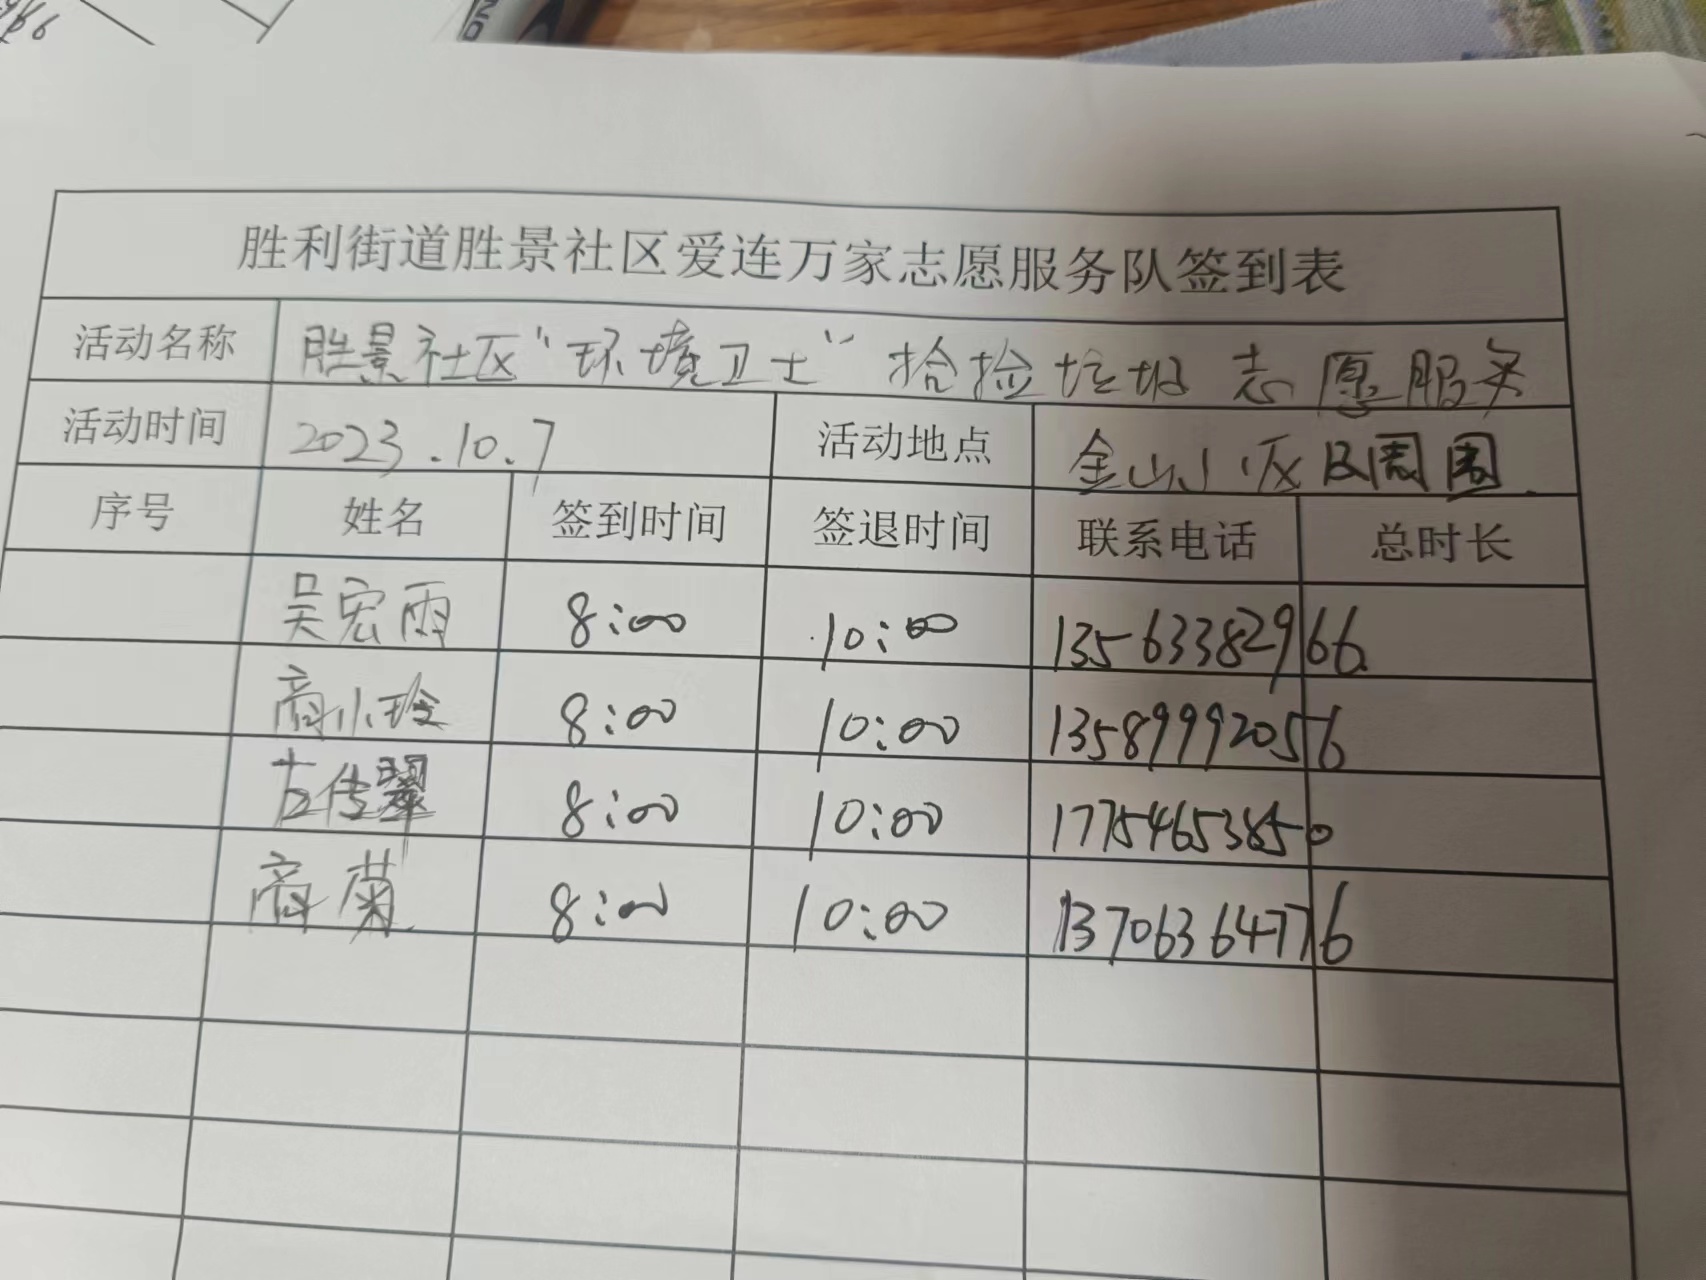 胜利街道胜景社区爱连万家志愿服务队签到表
活动名称 胜景社区“环境卫士”拾捡垃圾志愿服务
活动时间 2023.10.7 活动地点 金山小区及周围
序号 姓名 签到时间 签退时间 联系电话 总时长
吴宏雨 8:00 10:00 13563382966
商小玲 8:00 10:00 13589992056
古传翠 8:00 10:00 17754653850
商菊 8:00 10:00 13706364776